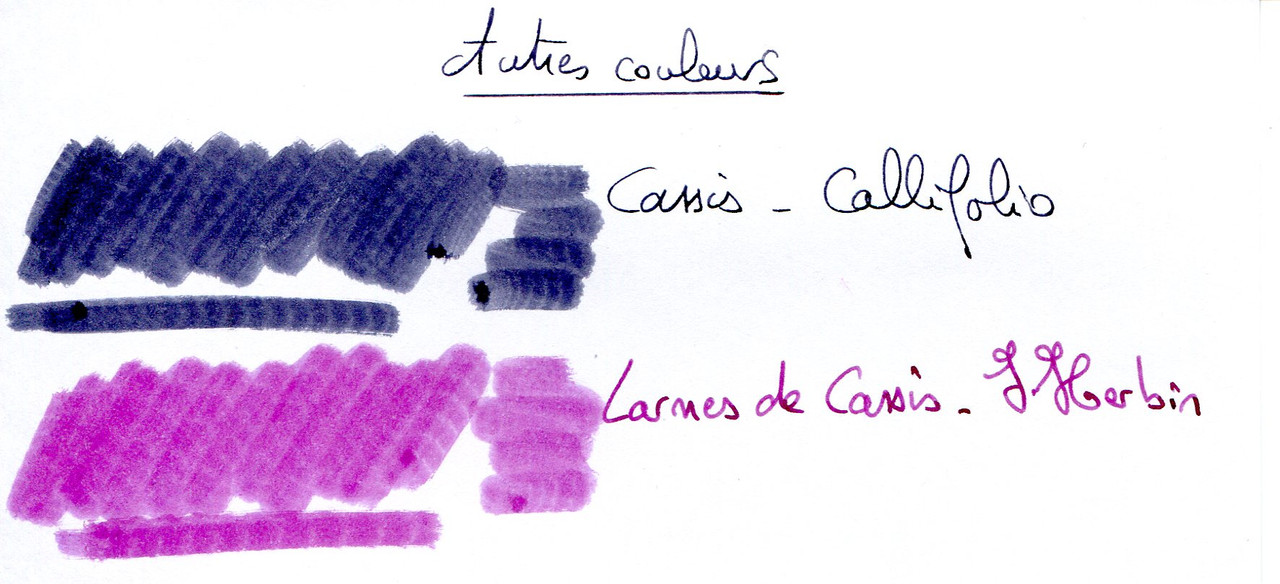 Autres couleurs
Cassis - Callifolio
Larmes de Cassis - J Herbin